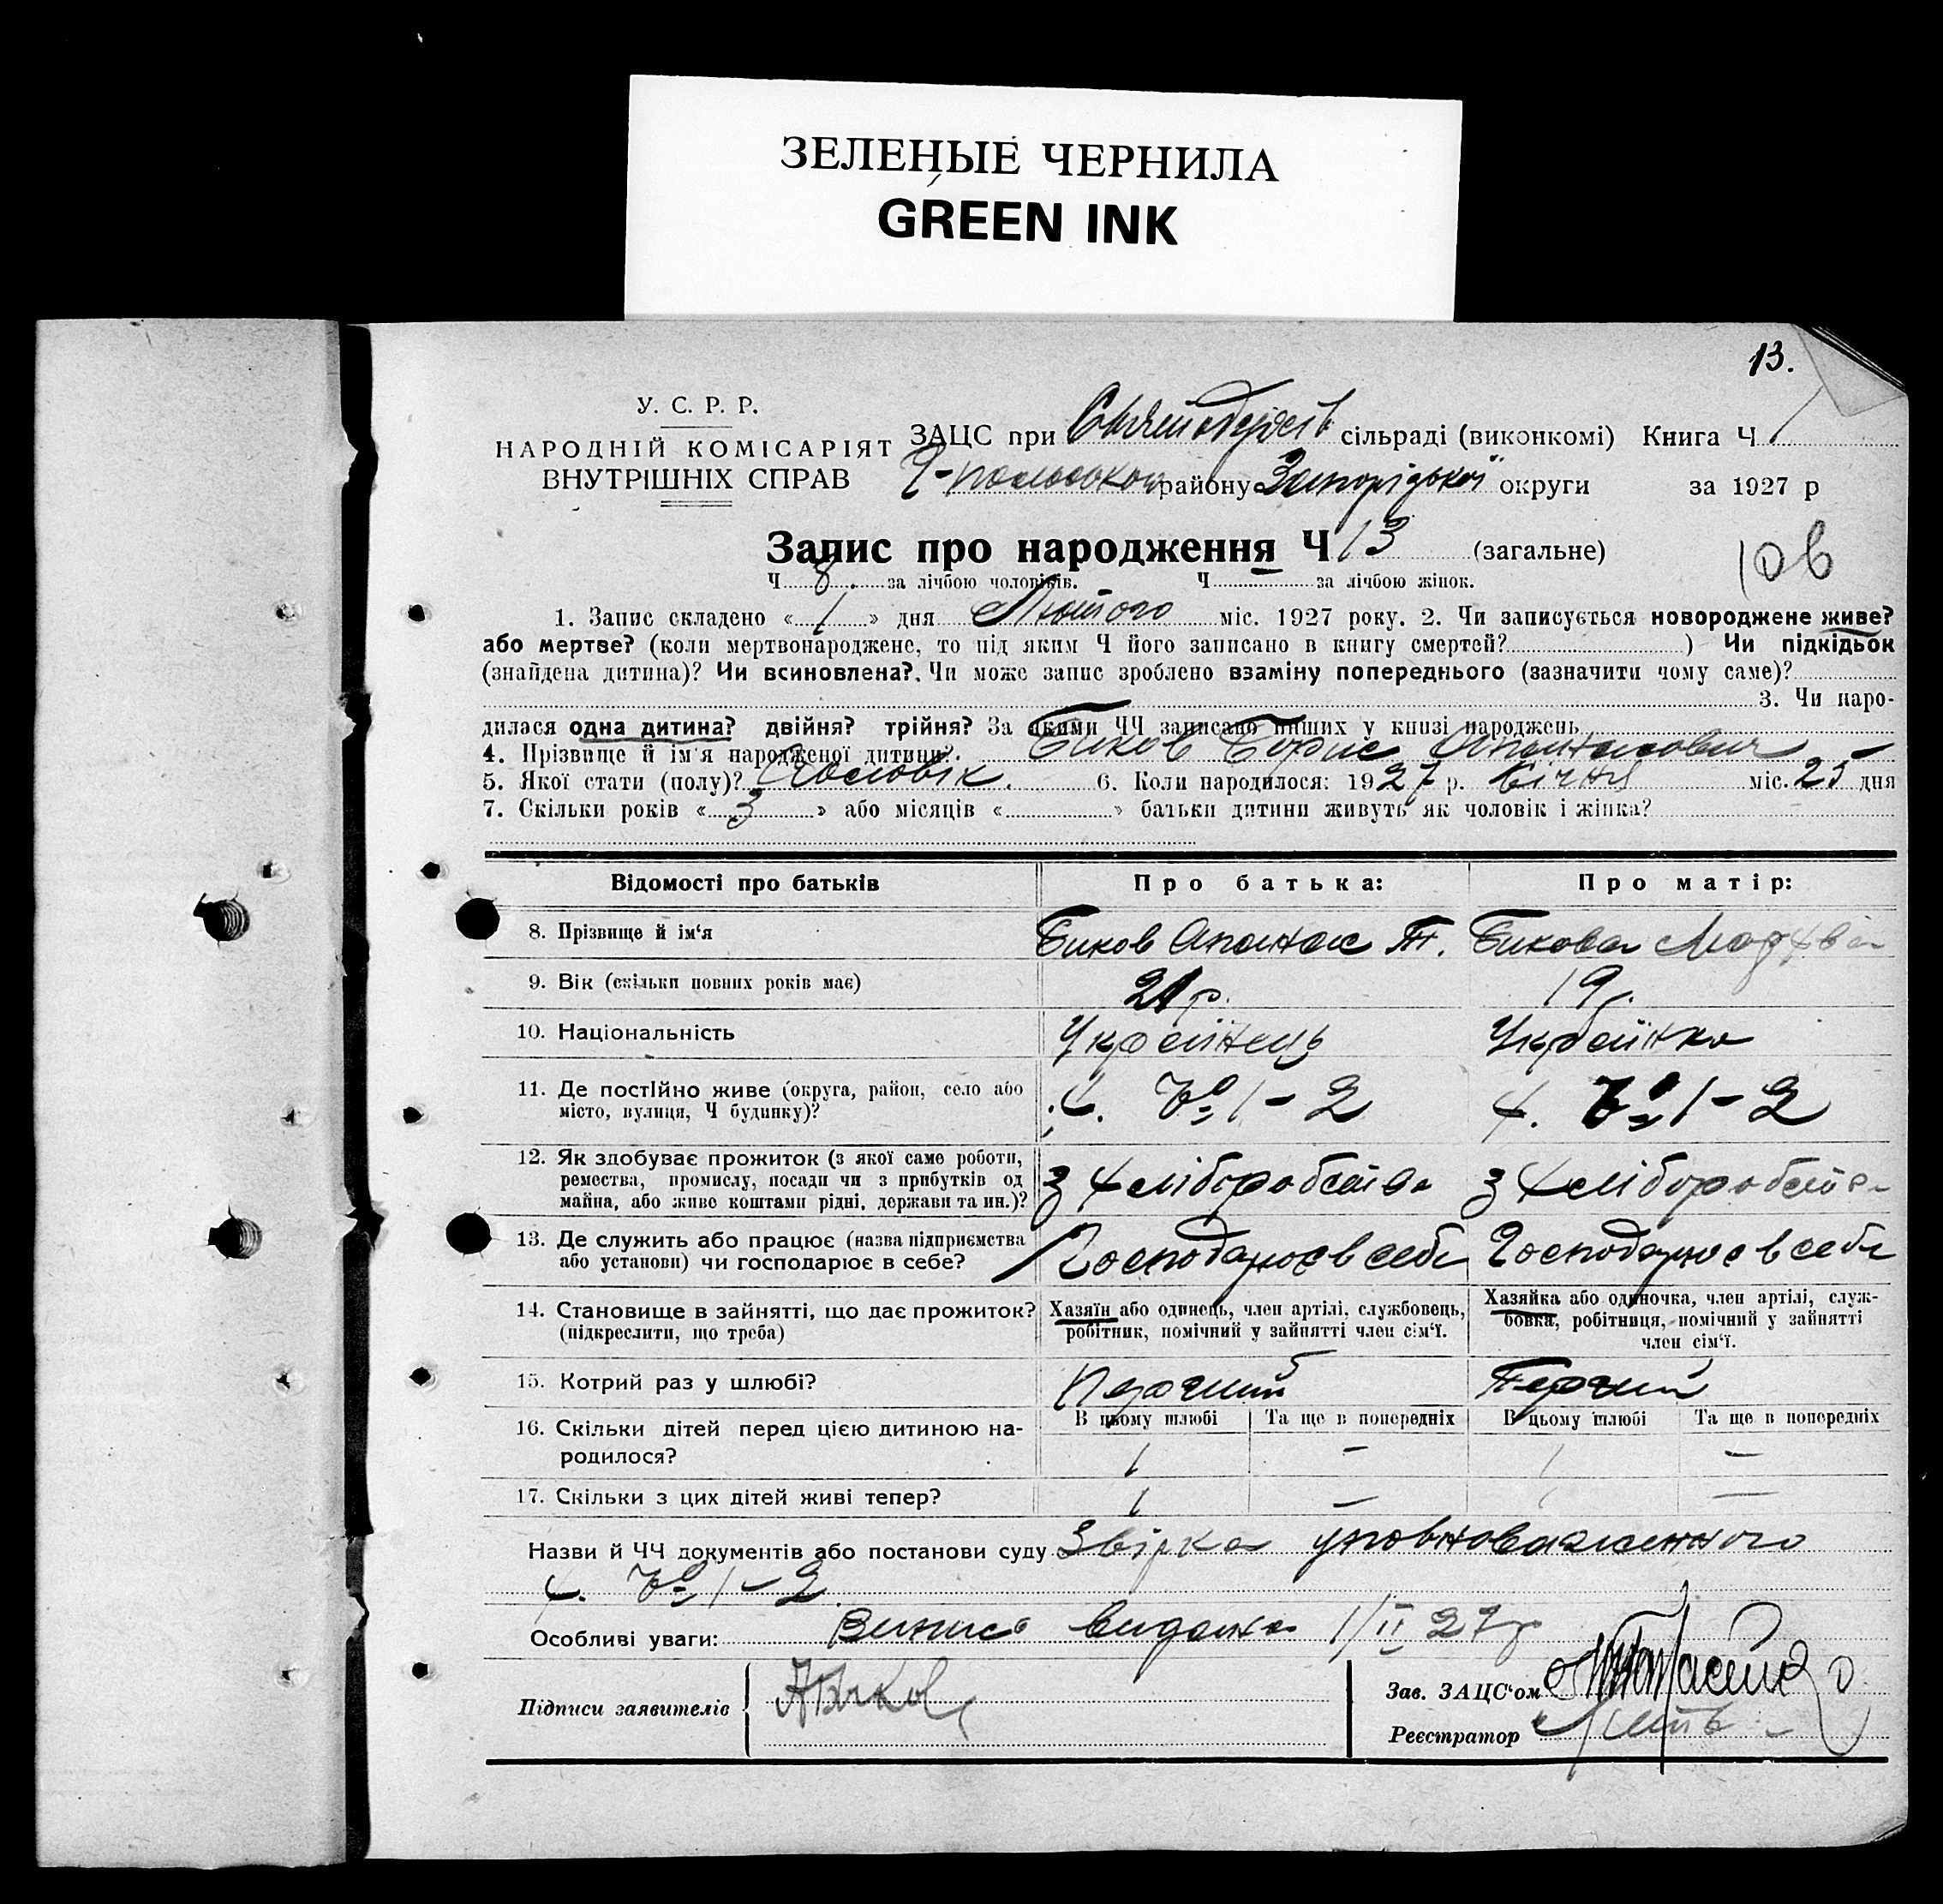 ЗЕЛЕНЫЕ ЧЕРНИЛА
GREEN INK
13.
У. С. Р. Р.
НАРОДНІЙ КОМІСАРІЯТ
ВНУТРІШНІХ СПРАВ
ЗАЦС при сільраді (виконкомі) Книга Ч 1
району Запорізької округи за 1927 р
Запис про народження Ч 13 (загальне)
10в
Ч 8. за лічбою чоловіків. Ч — за лічбою жінок.
1. Запис складено « 1 » дня Лютого міс. 1927 року. 2. Чи записується новороджене живе?
або мертве? (коли мертвонароджене, то під яким Ч його записано в книгу смертей? ) Чи підкідьок
(знайдена дитина)? Чи всиновлена? Чи може запис зроблено взаміну попереднього (зазначити чому саме)?
3. Чи наро-
дилася одна дитина? двійня? трійня? За якими ЧЧ записано инших у книзі народжень
4. Прізвище й ім'я народженої дитини? Биков Борис Опанасович
5. Якої стати (полу)? Чоловік. 6. Коли народилося: 1927 р. Січня міс. 25 дня
7. Скільки років « 3 » або місяців « » батьки дитини живуть як чоловік і жінка?
Відомості про батьків Про батька: Про матір:
8. Прізвище й ім'я Биков Апанас Т. Бикова
9. Вік (скільки повних років має) 21 р. 19 р.
10. Національність Українець Українка
11. Де постійно живе (округа, район, село або
місто, вулиця, Ч будинку)? х. № 1-2 х. № 1-2
12. Як здобуває прожиток (з якої саме роботи,
ремества, промислу, посади чи з прибутків од
майна, або живе коштами рідні, держави та ин.)? З хліборобства З хліборобства
13. Де служить або працює (назва підприємства
або установи) чи господарює в себе? Господарює в себе Господарює в себе
14. Становище в зайнятті, що дає прожиток?
(підкреслити, що треба)
Хазяїн або одинець, член артілі, службовець,
робітник, помічний у зайнятті член сім'ї.
Хазяйка або одиночка, член артілі, служ-
бовка, робітниця, помічний у зайнятті
член сім'ї.
15. Котрий раз у шлюбі? Перший Перший
В цьому шлюбі Та ще в попередніх В цьому шлюбі Та ще в попередніх
16. Скільки дітей перед цією дитиною на-
родилося? 1 — 1 —
17. Скільки з цих дітей живі тепер? 1 — 1 —
Назви й ЧЧ документів або постанови суду Звірка уповноваженного
х. № 1-2
Особливі уваги: Випись видана 1/II 27р
Підписи заявителів АБиков
Зав. ЗАЦС'ом
Реєстратор